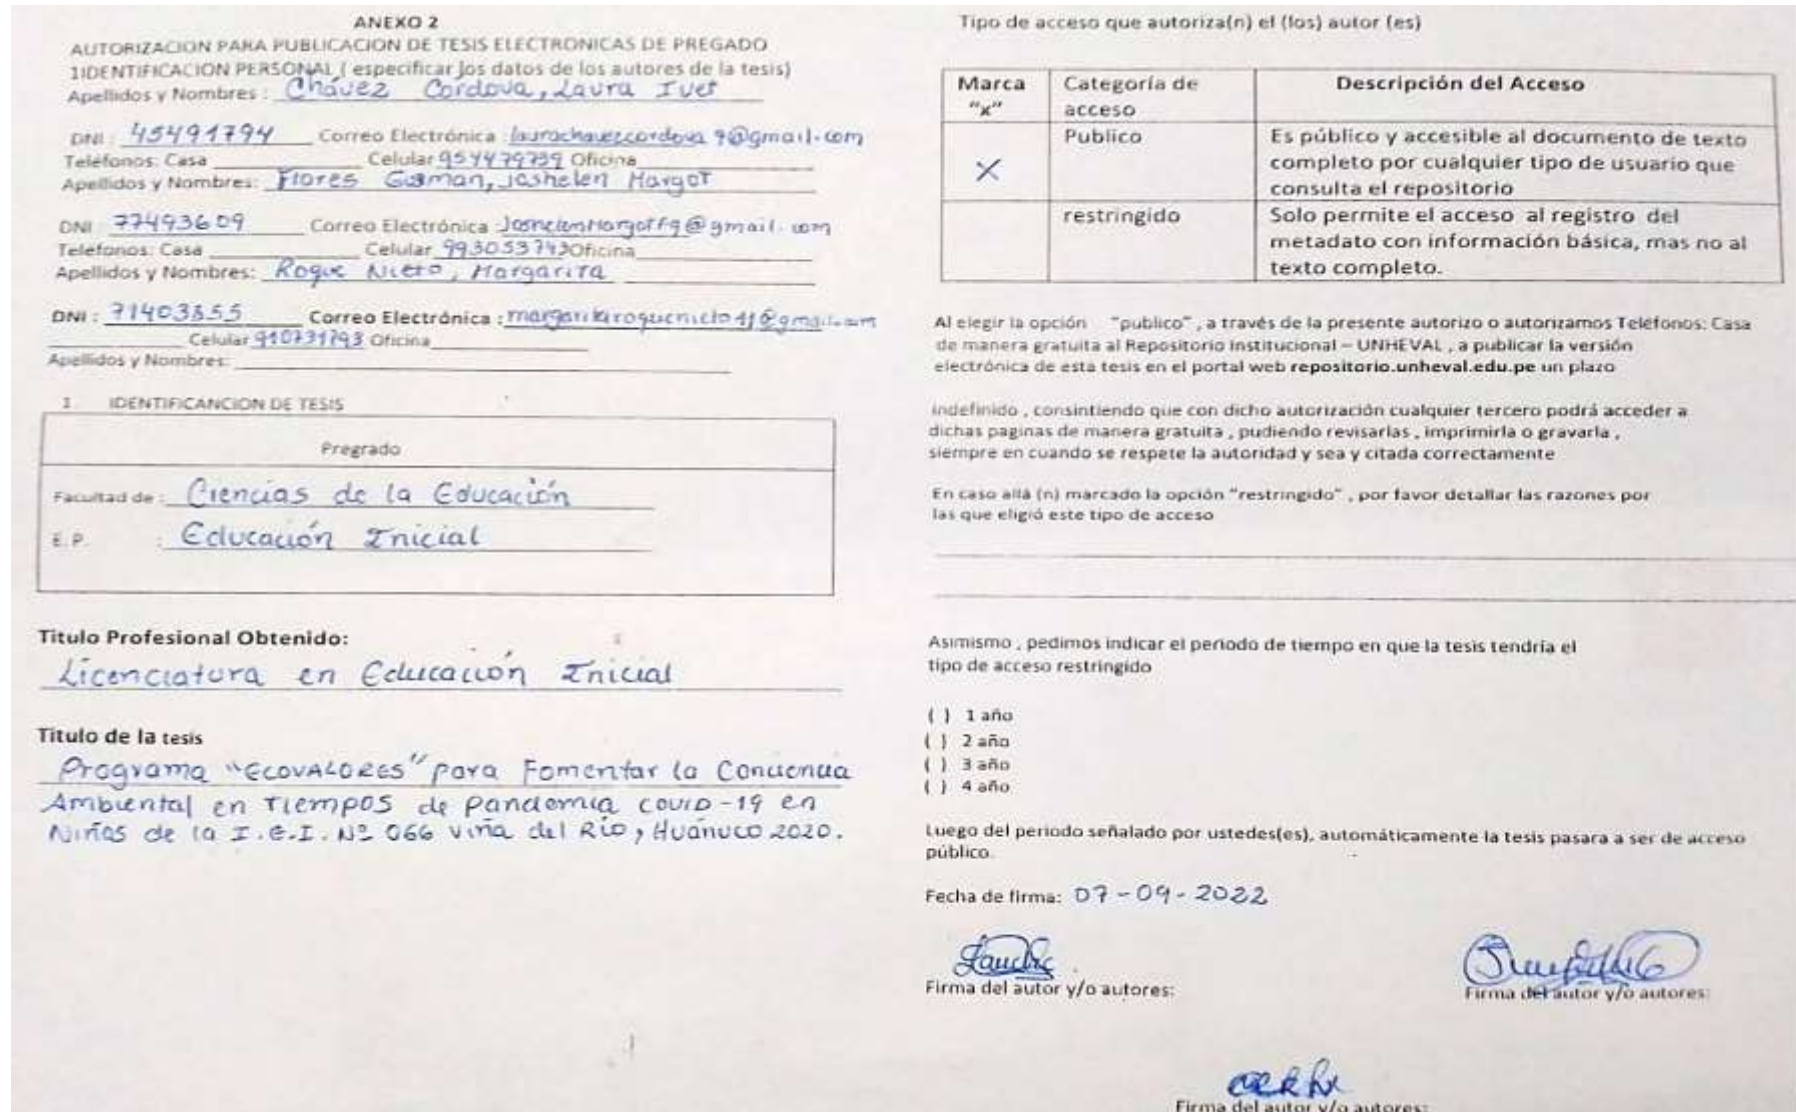 ANEXO 2
AUTORIZACION PARA PUBLICACION DE TESIS ELECTRONICAS DE PREGADO
1IDENTIFICACION PERSONAL ( especificar los datos de los autores de la tesis)
Apellidos y Nombres : Chávez Cordova, Laura Ivet
DNI : 45491794 Correo Electrónica : laurachavezcordova 9@gmail.com
Teléfonos: Casa Celular 954479759 Oficina
Apellidos y Nombres: Flores Gusman, Joshelen Margot
DNI 77493609 Correo Electrónica :
Teléfonos: Casa Celular 993053743 Oficina
Apellidos y Nombres: Roque Nieto, Margarita
DNI : 71403855 Correo Electrónica :
Celular 910731793 Oficina
Apellidos y Nombres:
1 IDENTIFICANCION DE TESIS
Pregrado
Facultad de : Ciencias de la Educación
E.P. : Educación Inicial
Titulo Profesional Obtenido:
Licenciatura en Educación Inicial
Titulo de la tesis
Programa "ECOVALORES" para Fomentar la Conciencia
Ambiental en Tiempos de pandemia COVID-19 en
Niños de la I.E.I. Nº 066 Viña del Río, Huánuco 2020.
Tipo de acceso que autoriza(n) el (los) autor (es)
Marca "x" Categoría de acceso Descripción del Acceso
X Publico Es público y accesible al documento de texto
completo por cualquier tipo de usuario que
consulta el repositorio
restringido Solo permite el acceso al registro del
metadato con información básica, mas no al
texto completo.
Al elegir la opción "publico" , a través de la presente autorizo o autorizamos Teléfonos: Casa
de manera gratuita al Repositorio Institucional – UNHEVAL , a publicar la versión
electrónica de esta tesis en el portal web repositorio.unheval.edu.pe un plazo
indefinido , consintiendo que con dicho autorización cualquier tercero podrá acceder a
dichas paginas de manera gratuita , pudiendo revisarlas , imprimirla o gravarla ,
siempre en cuando se respete la autoridad y sea y citada correctamente
En caso allá (n) marcado la opción "restringido" , por favor detallar las razones por
las que eligió este tipo de acceso
Asimismo , pedimos indicar el periodo de tiempo en que la tesis tendría el
tipo de acceso restringido
( ) 1 año
( ) 2 año
( ) 3 año
( ) 4 año
Luego del periodo señalado por ustedes(es), automáticamente la tesis pasara a ser de acceso
público.
Fecha de firma: 07-09-2022
Firma del autor y/o autores: Firma del autor y/o autores:
Firma del autor y/o autores: